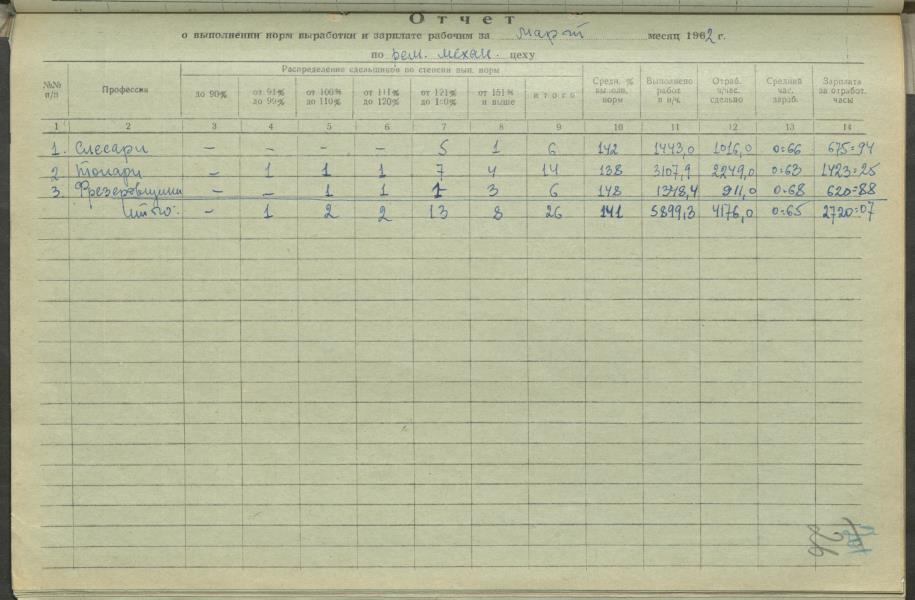 Отчет
о выполнении норм выработки и зарплате рабочим за март месяц 1962 г.
по рем. механ. цеху
№№ п/п Профессия Распределение сдельщиков по степени вып. норм Средн. % выполн. норм Выполнено работ в н/ч. Отраб. ч/час. сдельно Средний час. зараб. Зарплата за отработ. часы
до 90% от 91% до 99% от 100% до 110% от 111% до 120% от 121% до 150% от 151% и выше итого
1 2 3 4 5 6 7 8 9 10 11 12 13 14
1. Слесари – – – – 5 1 6 142 1443,0 1016,0 0=66 675=94
2 Токари – 1 1 1 7 4 14 138 3107,9 2249,0 0=63 1423=25
3. Фрезеровщики – – 1 1 1 3 6 148 1348,4 911,0 0=68 620=88
Итого: – 1 2 2 13 8 26 141 5899,3 4176,0 0=65 2720=07